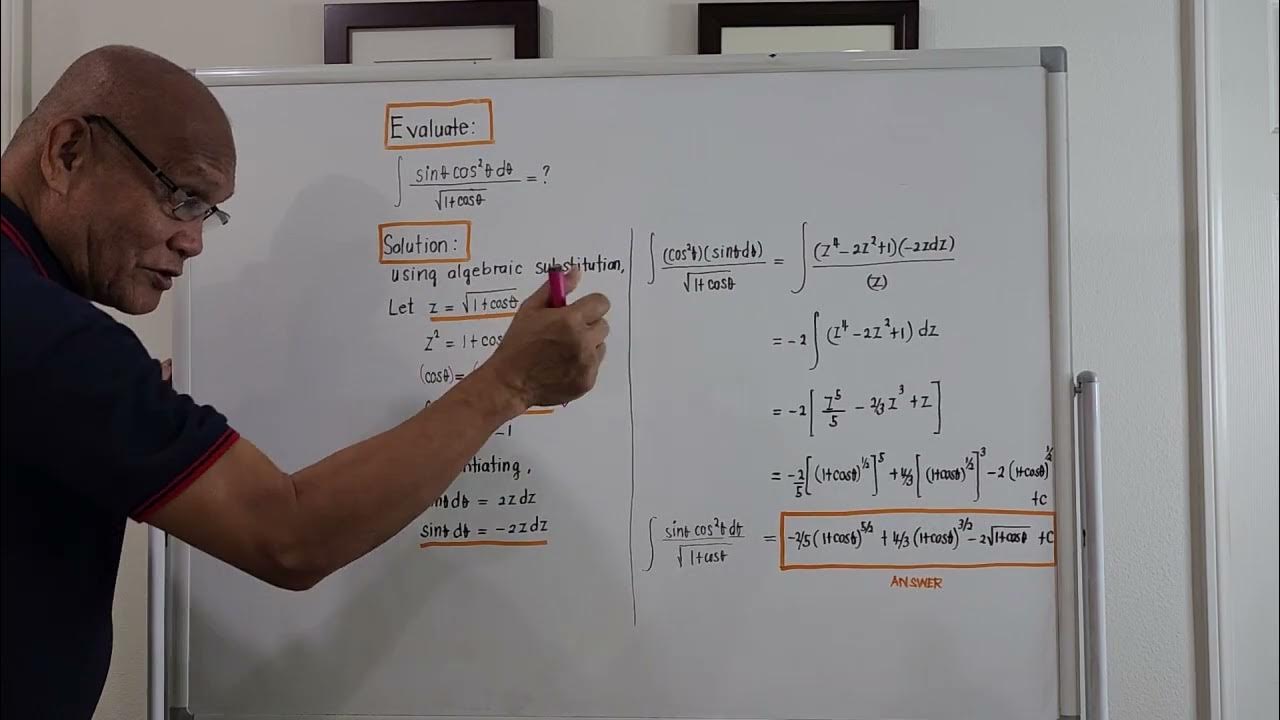 Evaluate:
∫ sinθ cos²θ dθ / √(1+cosθ) = ?
Solution:
using algebraic substitution,
Let z = √(1+cosθ)
z² = 1+cos
(cosθ) =
-1
tiating,
dθ = 2z dz
sinθ dθ = -2z dz
∫ (cos²θ)(sinθ dθ) / √(1+cosθ) = ∫ (z⁴ - 2z² + 1)(-2z dz) / (z)
= -2 ∫ (z⁴ - 2z² + 1) dz
= -2 [ z⁵/5 - 2/3 z³ + z ]
= -2/5 [(1+cosθ)^1/2]⁵ + 4/3 [(1+cosθ)^1/2]³ - 2 (1+cosθ)^1/2
+C
∫ sinθ cos²θ dθ / √(1+cosθ) = -2/5 (1+cosθ)^5/2 + 4/3 (1+cosθ)^3/2 - 2√(1+cosθ) + C
ANSWER